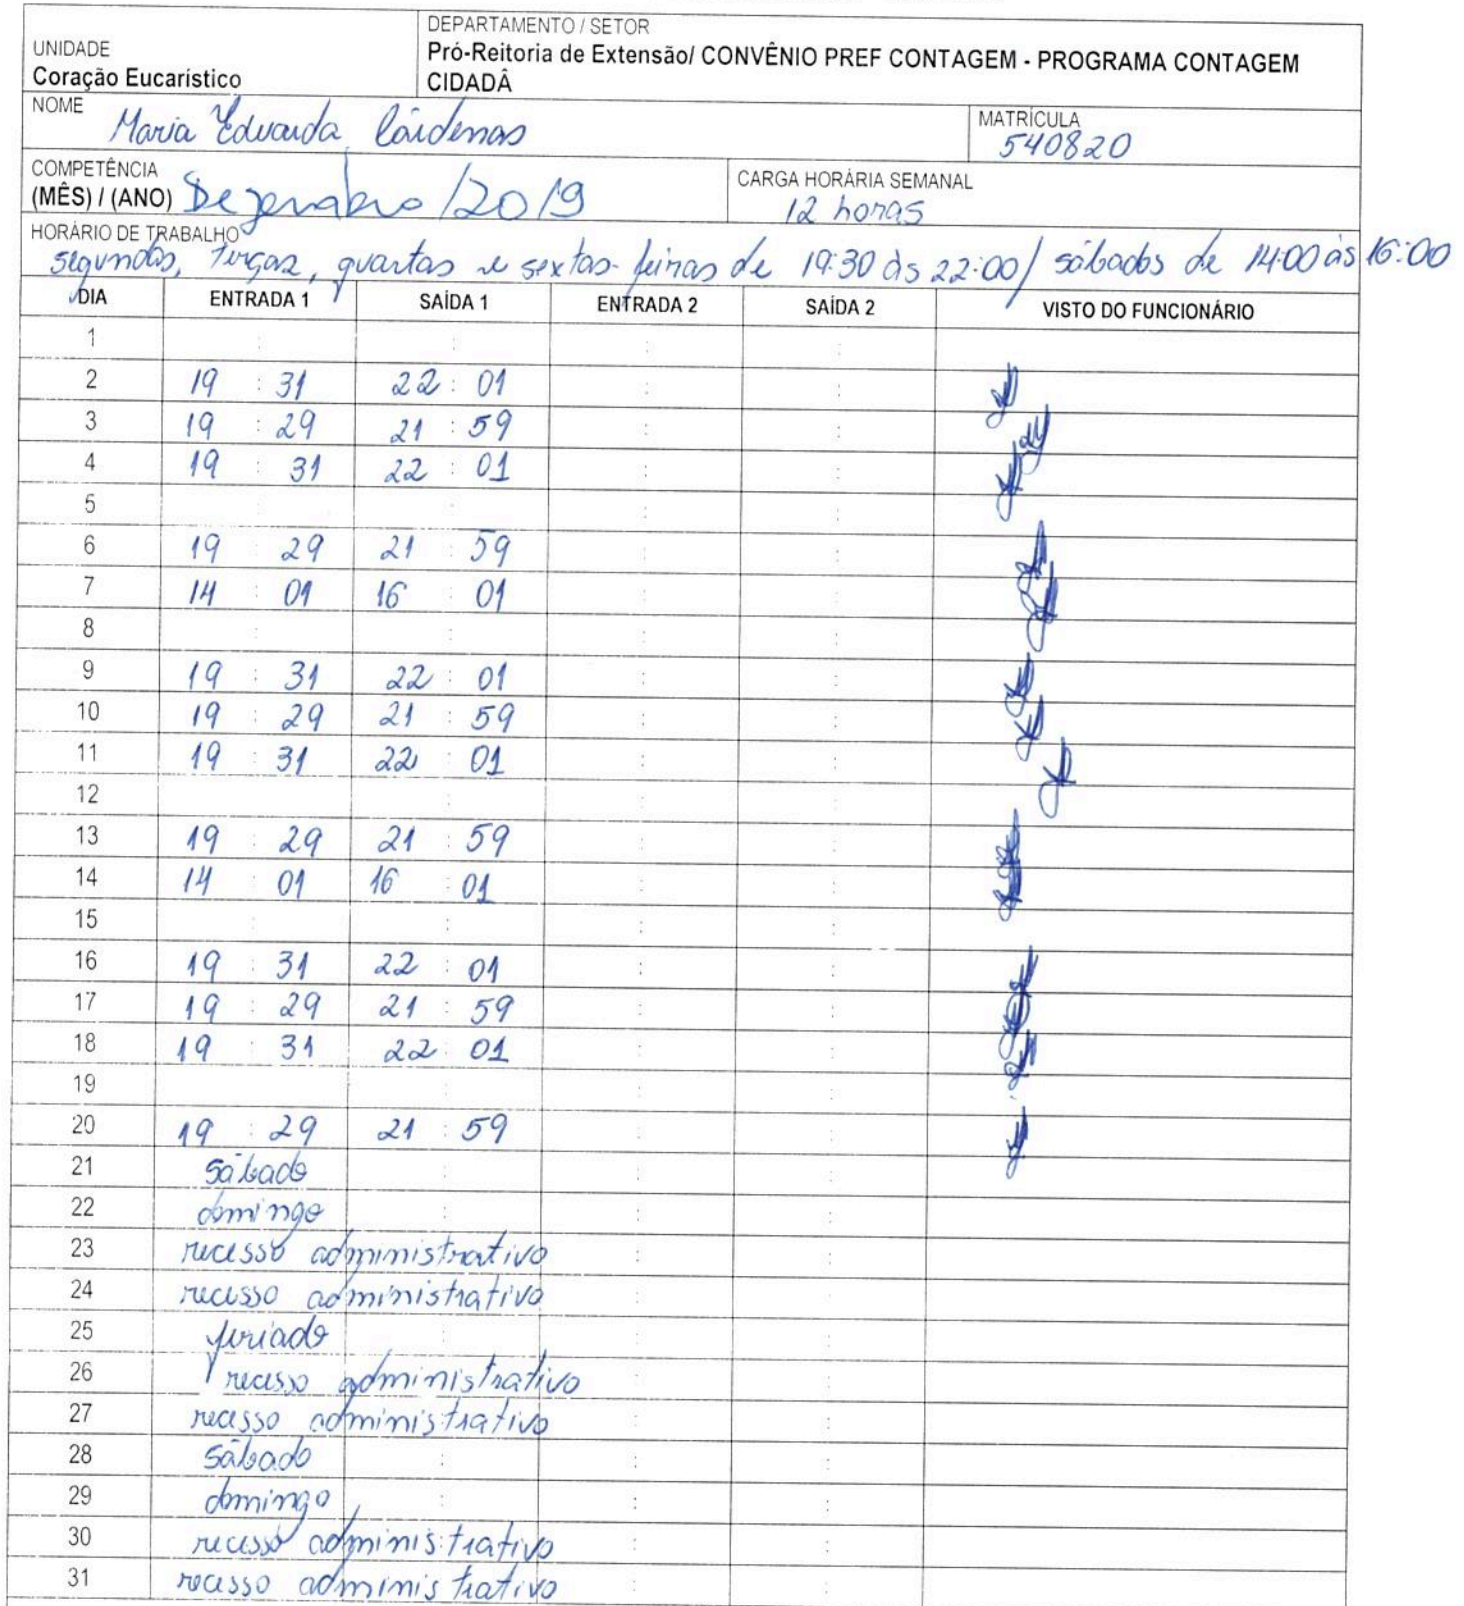 DEPARTAMENTO / SETOR
UNIDADE
Pró-Reitoria de Extensão/ CONVÊNIO PREF CONTAGEM - PROGRAMA CONTAGEM
Coração Eucarístico
CIDADÂ
NOME Maria Eduarda Cárdenas
MATRÍCULA
540820
COMPETÊNCIA
(MÊS) / (ANO) Dezembro /2019
CARGA HORÁRIA SEMANAL
12 horas
HORÁRIO DE TRABALHO
segundas, terças, quartas e sextas-feiras de 19:30 às 22:00/ sábados de 14:00 às 16:00
DIA ENTRADA 1 SAÍDA 1 ENTRADA 2 SAÍDA 2 VISTO DO FUNCIONÁRIO
1 : : : :
2 19 : 31 22 : 01 : :
3 19 : 29 21 : 59 : :
4 19 : 31 22 : 01 : :
5 : : : :
6 19 29 21 : 59 : :
7 14 : 01 16 : 01 : :
8 : : : :
9 19 : 31 22 : 01 : :
10 19 : 29 21 : 59 : :
11 19 : 31 22 01 : :
12 : : : :
13 19 : 29 21 : 59 : :
14 14 : 01 16 : 01 : :
15 : : : :
16 19 : 31 22 : 01 : :
17 19 : 29 21 : 59 : :
18 19 : 31 22 : 01 : :
19 : : : :
20 19 : 29 21 : 59 : :
21 sábado : : :
22 domingo : : :
23 recesso administrativo : :
24 recesso administrativo : :
25 feriado : : :
26 recesso administrativo : :
27 recesso administrativo : :
28 sábado : : :
29 domingo : : :
30 recesso administrativo : :
31 recesso administrativo : :